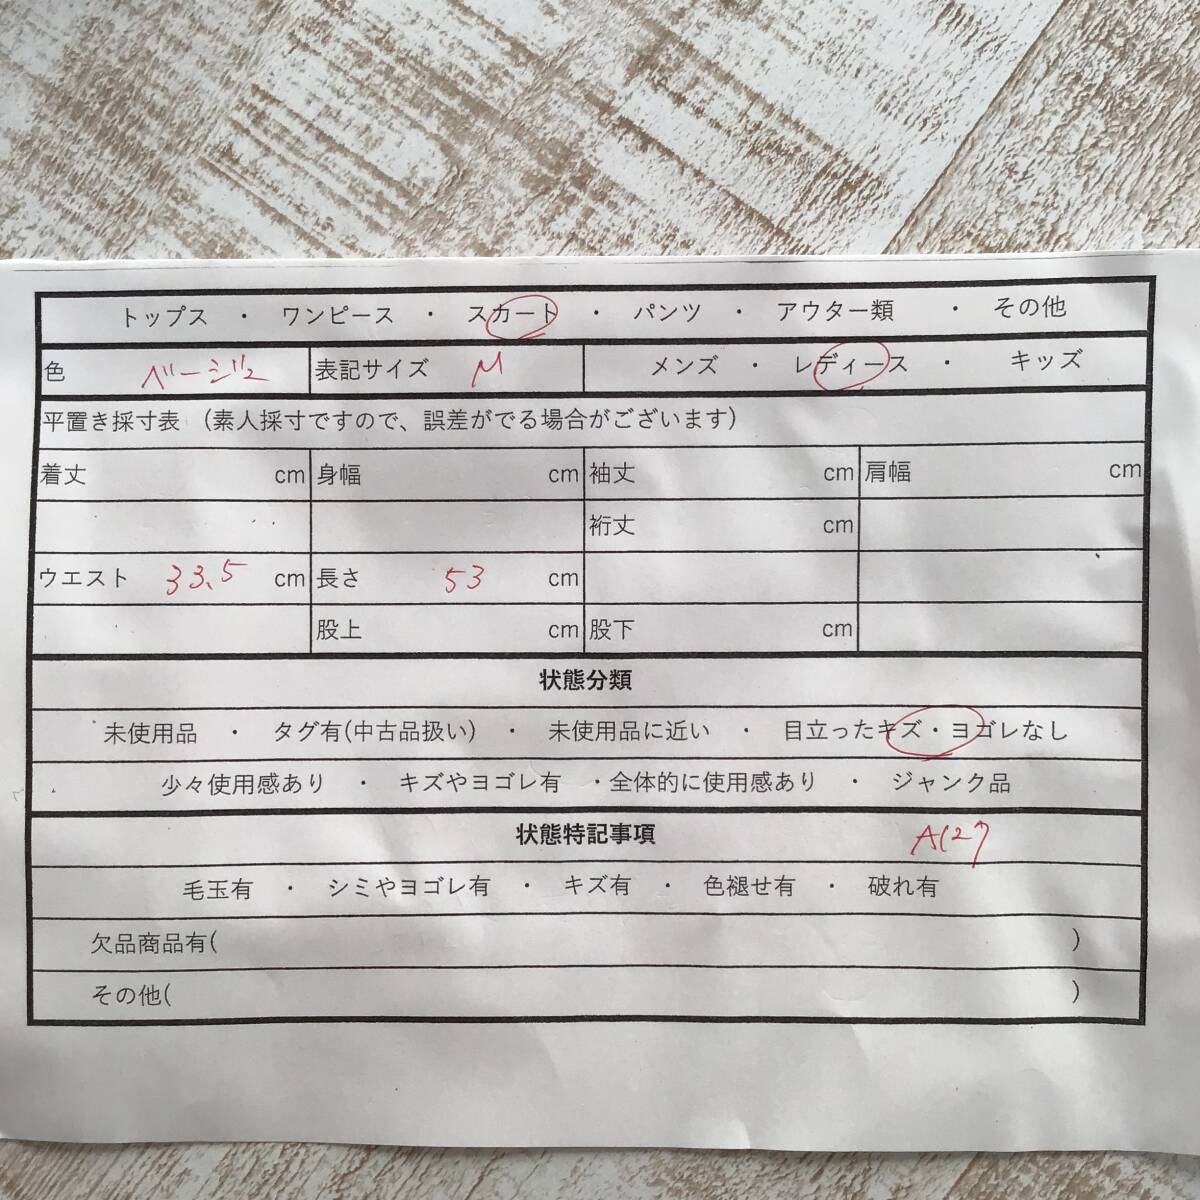 トップス ・ ワンピース ・ スカート ・ パンツ ・ アウター類 ・ その他
色 ベージュ 表記サイズ M メンズ ・ レディース ・ キッズ
平置き採寸表 (素人採寸ですので、誤差がでる場合がございます)
着丈 cm 身幅 cm 袖丈 cm 肩幅 cm
裄丈 cm
ウエスト 33.5 cm 長さ 53 cm
股上 cm 股下 cm
状態分類
未使用品 ・ タグ有(中古品扱い) ・ 未使用品に近い ・ 目立ったキズ・ヨゴレなし
少々使用感あり ・ キズやヨゴレ有 ・全体的に使用感あり ・ ジャンク品
状態特記事項
毛玉有 ・ シミやヨゴレ有 ・ キズ有 ・ 色褪せ有 ・ 破れ有
欠品商品有( )
その他( )